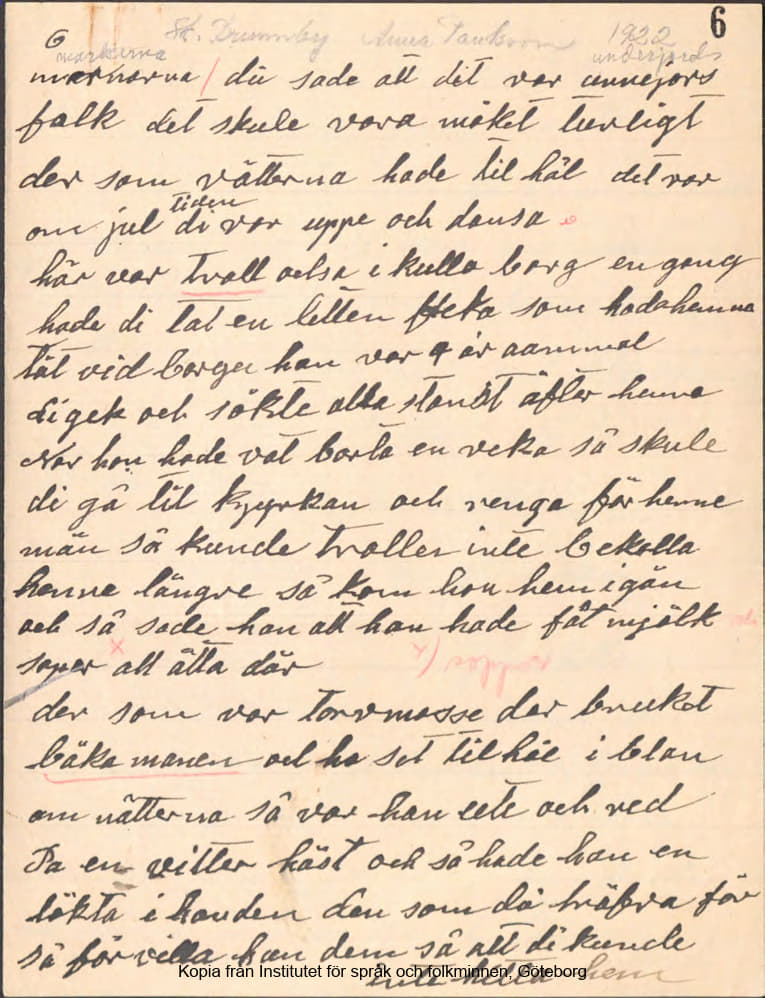 6
6 St. Drumby Anna Paulsson 1922
markerna underjords
marnorna / du sade att dit var unnejors
falk det skule vara möket turligt
der som vätterna hade til hål det var
om jul tiden di var uppe och dansa
här var troll ocksa i kulla borg en gong
hade di tat en litten fleka som hadehemma
tät vid borgen han var 9 år aammal
di gek och sökte alla stanst äfter henne
Nar hon hade vat borta en veka så skule
di gå til kyyrkan och renga för henne
män så kunde troller inte bekolla
henne längre så kom hon hem igän
och så sade hon att hon hade fåt mjölk
soper x att äta där x)
der som var torvmosse der bruket
bäka manen och ha set til håe i blan
om nätterna så var han ute och red
Pa en vitter häst och så hade han en
lökta i handen den som då träfva för
så för villa han dem så att di kunde
inte hetta hem
Kopia från Institutet för språk och folkminnen, Göteborg